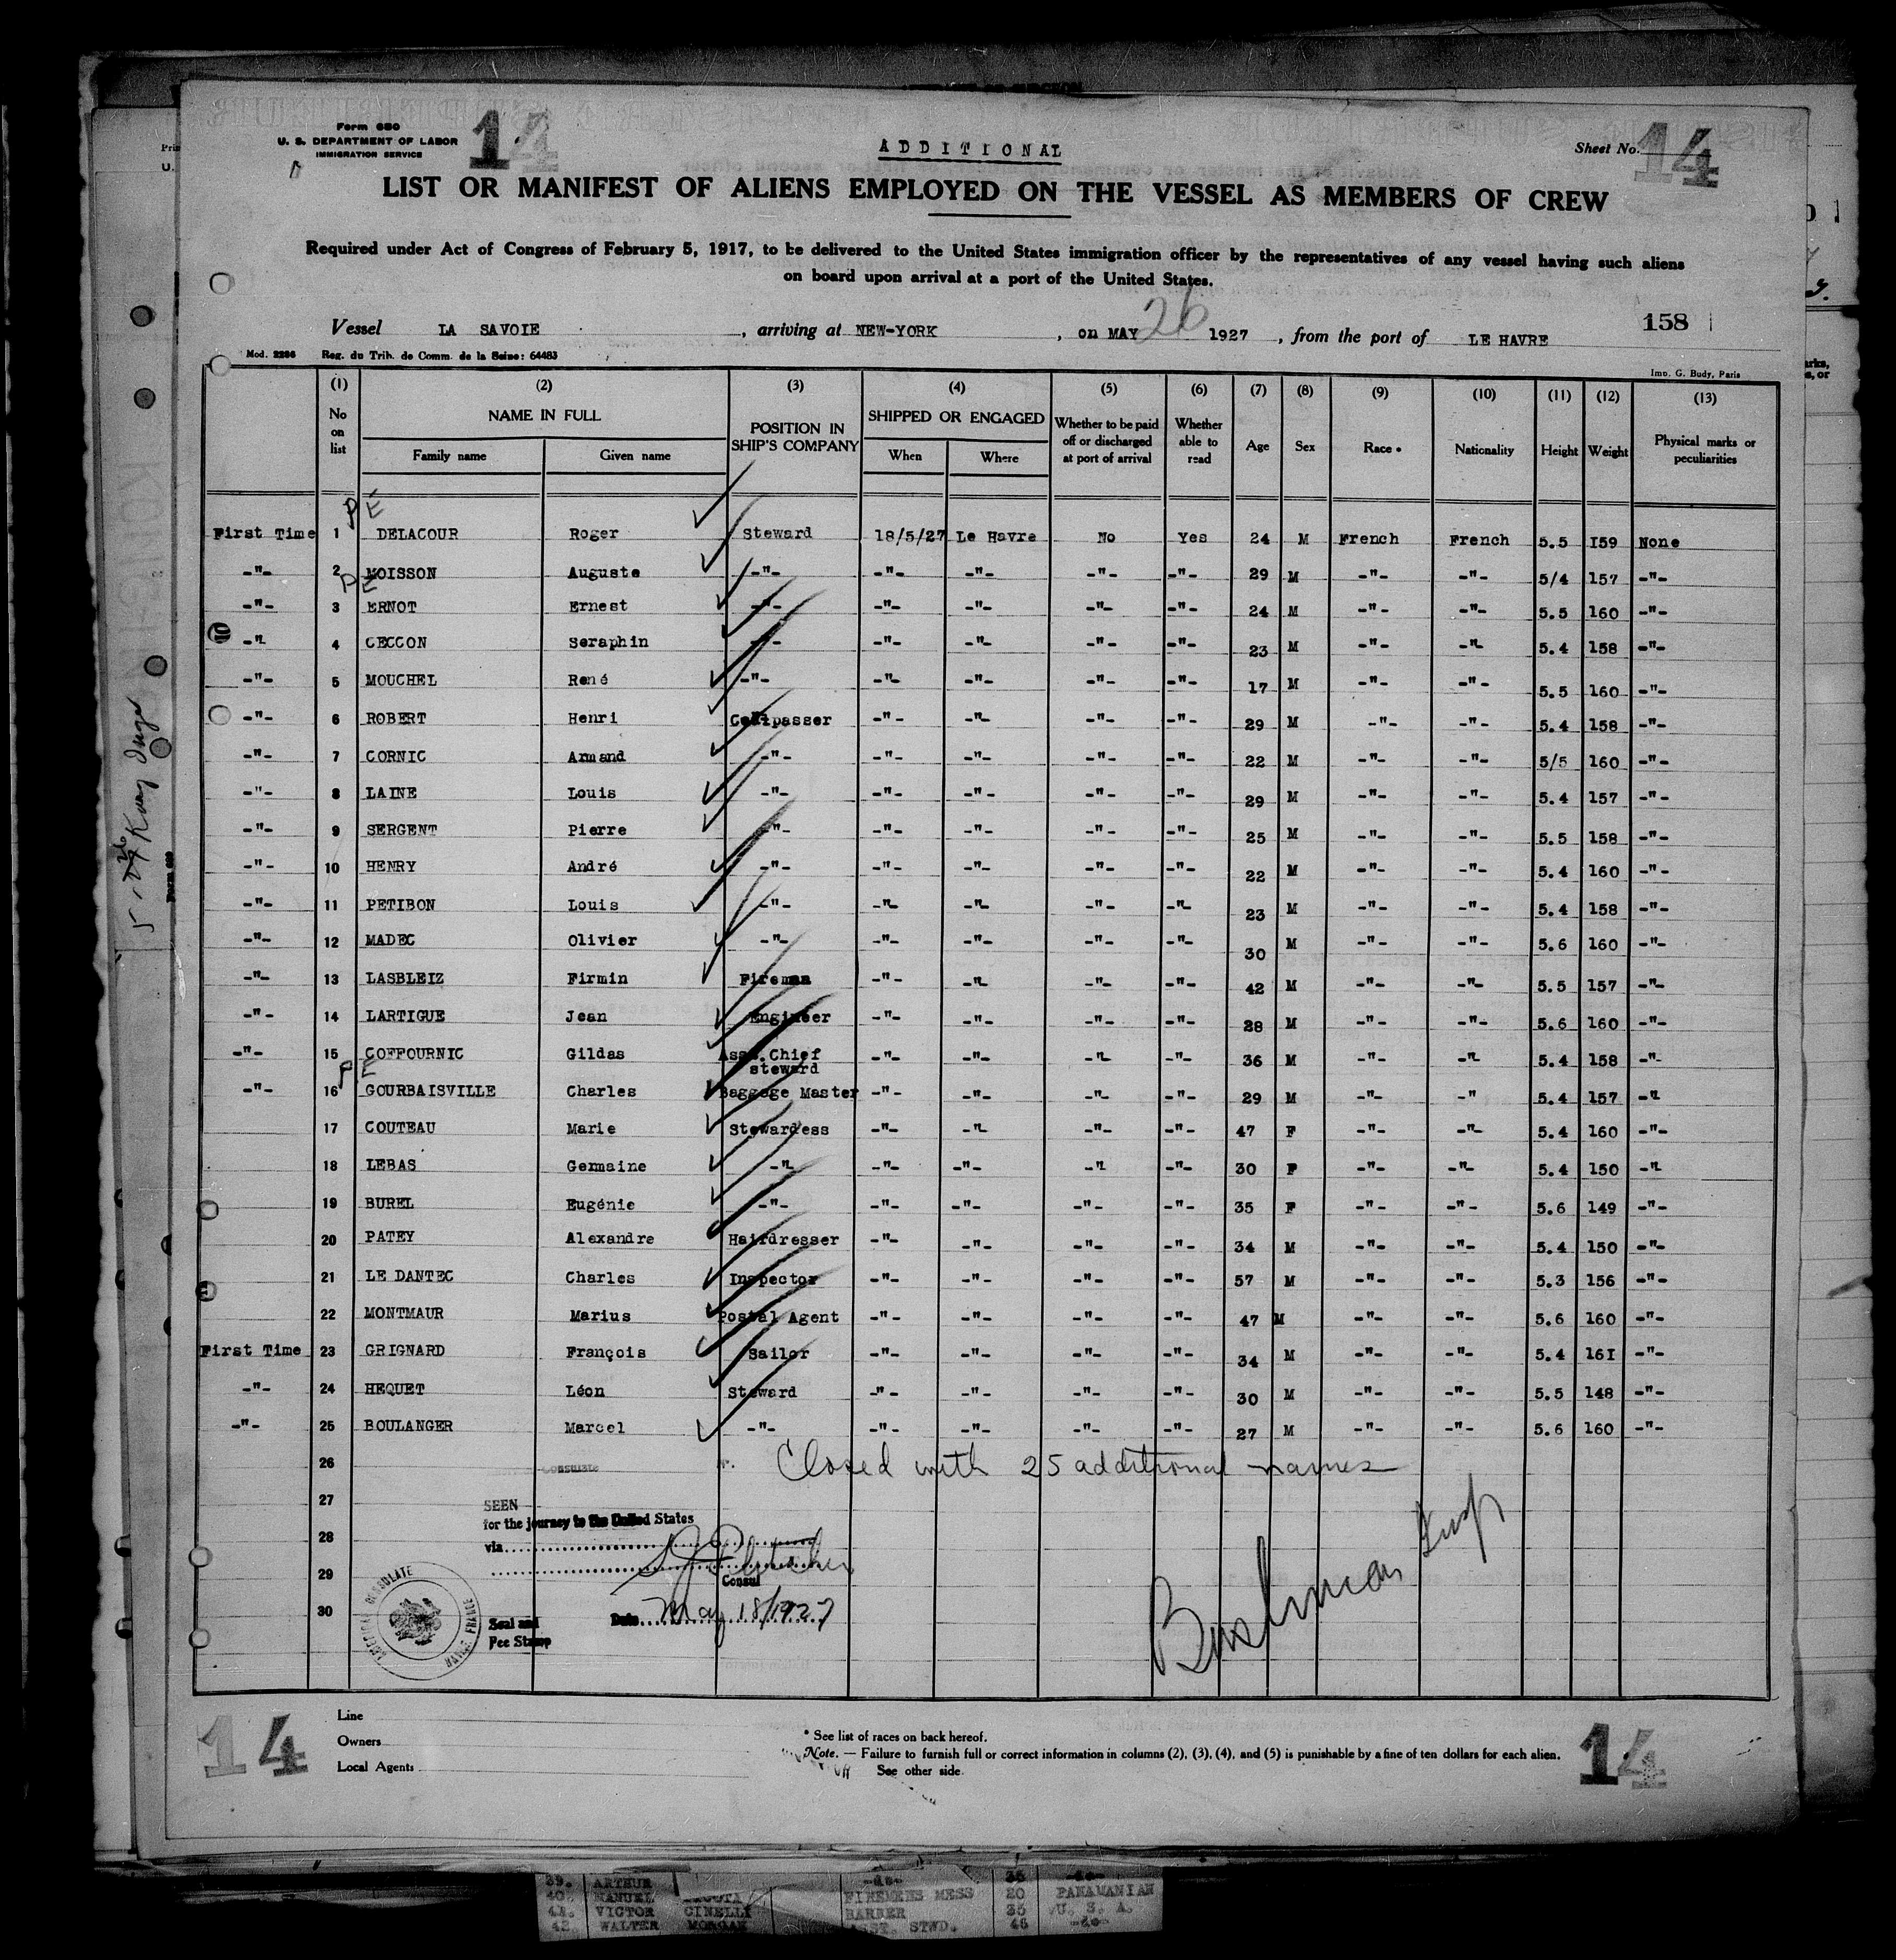 Form 680
U. S. DEPARTMENT OF LABOR
IMMIGRATION SERVICE
14
ADDITIONAL
Sheet No. 14
LIST OR MANIFEST OF ALIENS EMPLOYED ON THE VESSEL AS MEMBERS OF CREW
Required under Act of Congress of February 5, 1917, to be delivered to the United States immigration officer by the representatives of any vessel having such aliens
on board upon arrival at a port of the United States.
158
Vessel LA SAVOIE , arriving at NEW-YORK , on MAY 26 1927 , from the port of LE HAVRE
Mod. 2286 Reg. du Trib. de Comm. de la Seine: 64483
Imp. G. Budy, Paris
(1) (2) (3) (4) (5) (6) (7) (8) (9) (10) (11) (12) (13)
No on list NAME IN FULL Family name Given name POSITION IN SHIP'S COMPANY SHIPPED OR ENGAGED When Where Whether to be paid off or discharged at port of arrival Whether able to read Age Sex Race * Nationality Height Weight Physical marks or peculiarities
PE
First Time 1 DELACOUR Roger Steward 18/5/27 Le Havre No Yes 24 M French French 5.5 I59 None
-"- 2 MOISSON Auguste -"- -"- -"- -"- -"- 29 M -"- -"- 5/4 157 -"-
PE
-"- 3 ERNOT Ernest -"- -"- -"- -"- -"- 24 M -"- -"- 5.5 160 -"-
-"- 4 CECCON Seraphin -"- -"- -"- -"- -"- 23 M -"- -"- 5.4 158 -"-
-"- 5 MOUCHEL René -"- -"- -"- -"- -"- 17 M -"- -"- 5.5 160 -"-
-"- 6 ROBERT Henri Coalpasser -"- -"- -"- -"- 29 M -"- -"- 5.4 158 -"-
-"- 7 CORNIC Armand -"- -"- -"- -"- -"- 22 M -"- -"- 5/5 160 -"-
-"- 8 LAINE Louis -"- -"- -"- -"- -"- 29 M -"- -"- 5.4 157 -"-
-"- 9 SERGENT Pierre -"- -"- -"- -"- -"- 25 M -"- -"- 5.5 158 -"-
-"- 10 HENRY André -"- -"- -"- -"- -"- 22 M -"- -"- 5.4 160 -"-
-"- 11 PETIBON Louis -"- -"- -"- -"- -"- 23 M -"- -"- 5.4 158 -"-
-"- 12 MADEC Olivier -"- -"- -"- -"- -"- 30 M -"- -"- 5.6 160 -"-
-"- 13 LASBLEIZ Firmin Fireman -"- -"- -"- -"- 42 M -"- -"- 5.5 157 -"-
-"- 14 LARTIGUE Jean Engineer -"- -"- -"- -"- 28 M -"- -"- 5.6 160 -"-
-"- 15 COFFOURNIC Gildas Ass. Chief steward -"- -"- -"- -"- 36 M -"- -"- 5.4 158 -"-
PE
-"- 16 GOURBAISVILLE Charles Baggage Master -"- -"- -"- -"- 29 M -"- -"- 5.4 157 -"-
17 COUTEAU Marie Stewardess -"- -"- -"- -"- 47 F -"- -"- 5.4 160 -"-
18 LEBAS Germaine -"- -"- -"- -"- -"- 30 F -"- -"- 5.4 150 -"-
19 BUREL Eugénie -"- -"- -"- -"- -"- 35 F -"- -"- 5.6 149 -"-
20 PATEY Alexandre Hairdresser -"- -"- -"- -"- 34 M -"- -"- 5.4 150 -"-
21 LE DANTEC Charles Inspector -"- -"- -"- -"- 57 M -"- -"- 5.3 156 -"-
22 MONTMAUR Marius Postal Agent -"- -"- -"- -"- 47 M -"- -"- 5.6 160 -"-
First Time 23 GRIGNARD François Sailor -"- -"- -"- -"- 34 M -"- -"- 5.4 16I -"-
-"- 24 HEQUET Léon Steward -"- -"- -"- -"- 30 M -"- -"- 5.5 148 -"-
-"- 25 BOULANGER Marcel -"- -"- -"- -"- -"- 27 M -"- -"- 5.6 160 -"-
26 Closed with 25 additional names
27 SEEN
for the journey to the United States
28 via
29 Consul
30 Date May 18/1927
Seal and
Fee Stamp
AMERICAN CONSULATE HAVRE FRANCE
Bushman Insp
14
Line
Owners
Local Agents
* See list of races on back hereof.
Note. — Failure to furnish full or correct information in columns (2), (3), (4), and (5) is punishable by a fine of ten dollars for each alien.
See other side.
14
39. ARTHUR -do- 35 -do-
40. MANUEL FIREMENS MESS 20 PANAMANIAN
41. VICTOR CINELLI BARBER 35 U. S. A.
42. WALTER MORGAN ASST. STWD. 46 -do-